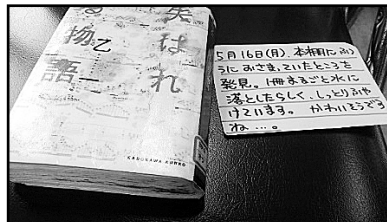 失はれ
る物語
乙一
KADOKAWA BUNKO
5月16日(月)、本棚にふつ
うにおさまっていたところを
発見。1冊まるごと水に
落としたらしく、しっとりふや
けています。かわいそうです
ね…。